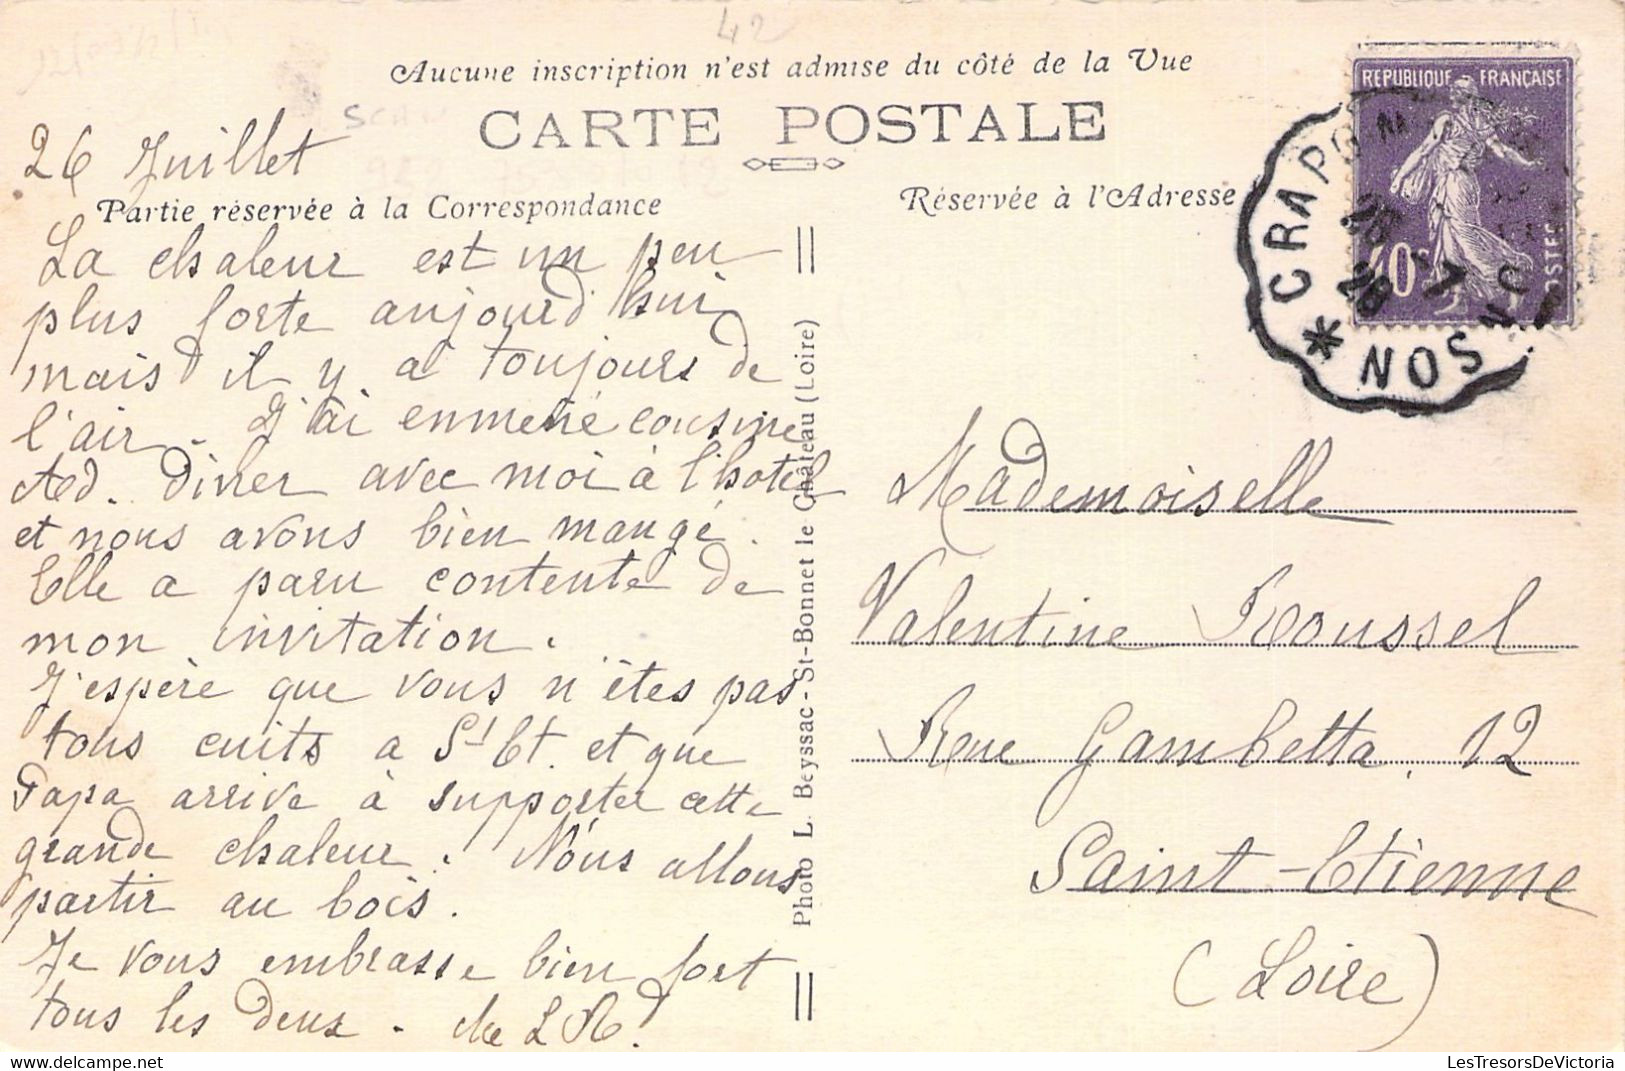 42
Aucune inscription n'est admise du côté de la Vue
CARTE POSTALE
26 Juillet
Partie réservée à la Correspondance
Réservée à l'Adresse
REPUBLIQUE FRANÇAISE
POSTES
40c
CRAPONNE
26 -7
26
La chaleur est un peu
plus forte aujourd'hui
mais il y a toujours de
l'air. J'ai enmené cousine
Ad. dîner avec moi à l'hotel
et nous avons bien mangé.
Elle a paru contente de
mon invitation.
J'espère que vous n'êtes pas
tous cuits a St Et. et que
Papa arrive à supporter cette
grande chaleur. Nous allons
partir au bois.
Je vous embrasse bien fort
tous les deux.
Photo L. Beyssac - St-Bonnet le Château (Loire)
Mademoiselle
Valentine Roussel
Rue Gambetta, 12
Saint-Etienne
(Loire)
LesTresorsDeVictoria